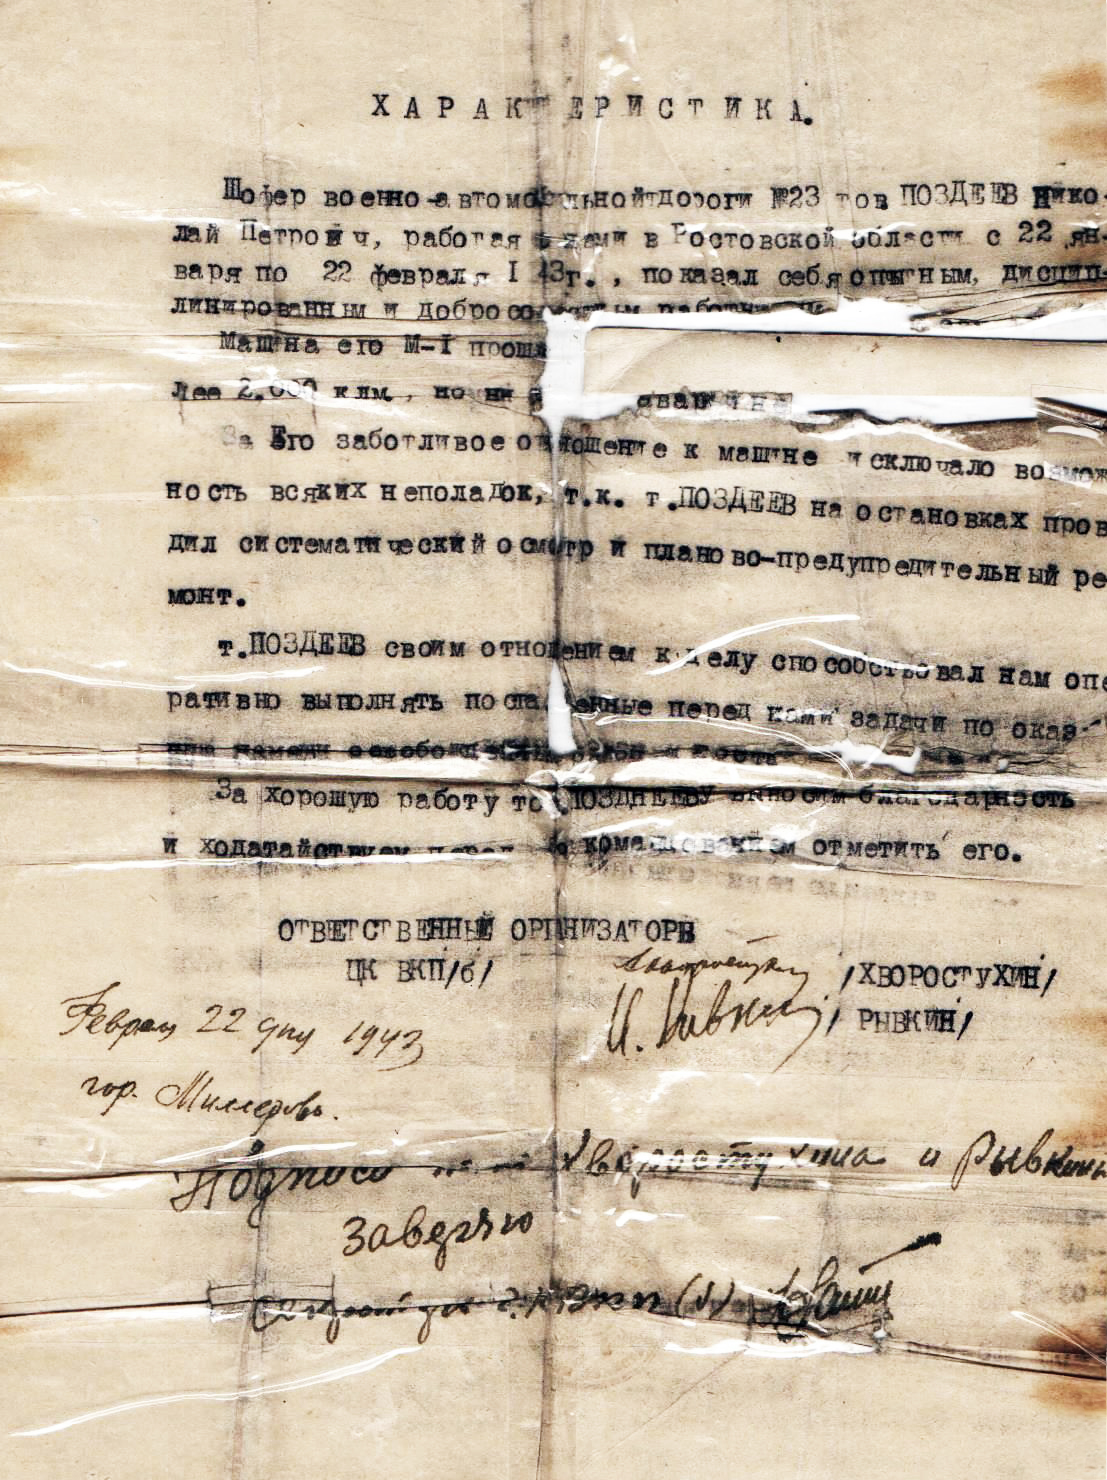 ХАРАКТЕРИСТИКА.
Шофер военно-автомобильной дороги №23 тов ПОЗДЕЕВ Нико-
лай Петрович, работая с нами в Ростовской области с 22 ян-
варя по 22 февраля 1943г., показал себя опытным, дисцип-
линированным и добросовестным работником
Машина его М-1 прошла
лее 2.000 клм., но ни аварии не
За Его заботливое отношение к машине исключало возмож
ность всяких неполадок, т.к. т.ПОЗДЕЕВ на остановках пров
дил систематический осмотр и планово-предупредительный ре
монт.
т.ПОЗДЕЕВ своим отношением к делу способствовал нам опе
ративно выполнять поставленные перед нами задачи по оказ
нию помощи освобожденным
За хорошую работу тов ПОЗДНЕЕВУ выносим благодарность
и ходатайствуем перед командованием отметить его.
ОТВЕТСТВЕННЫЕ ОРГАНИЗАТОРЫ
ЦК ВКП/б/ /ХВОРОСТУХИН/
И. Рывкин / РЫВКИН/
Февраля 22 дня 1943
гор. Миллерово.
Подписи Хворостухина и Рывкина
заверяю
Секретарь ВКП(б)